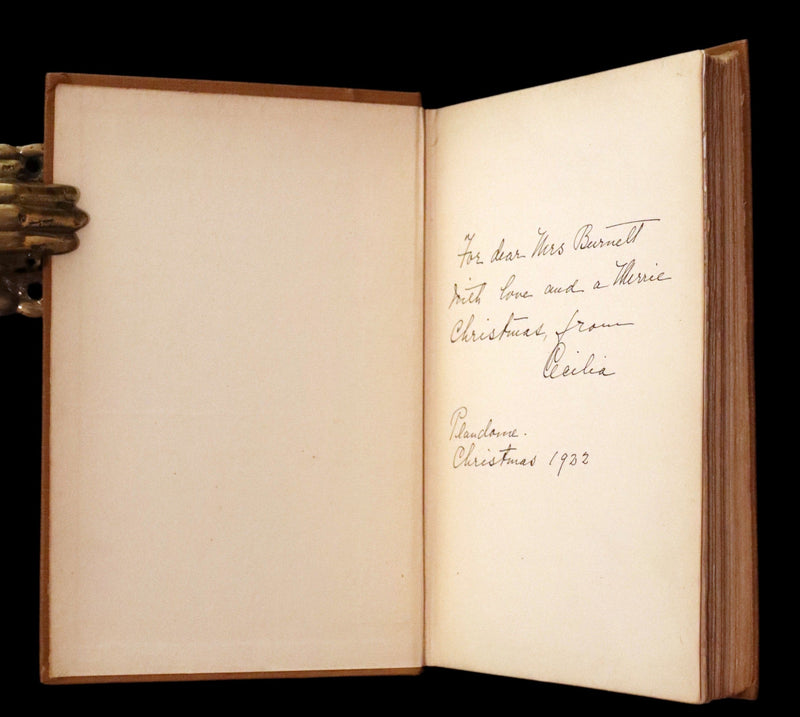 For dear Mrs Burnett
with love and a Merrie
Christmas, from
Cecilia
Plandome.
Christmas 1932